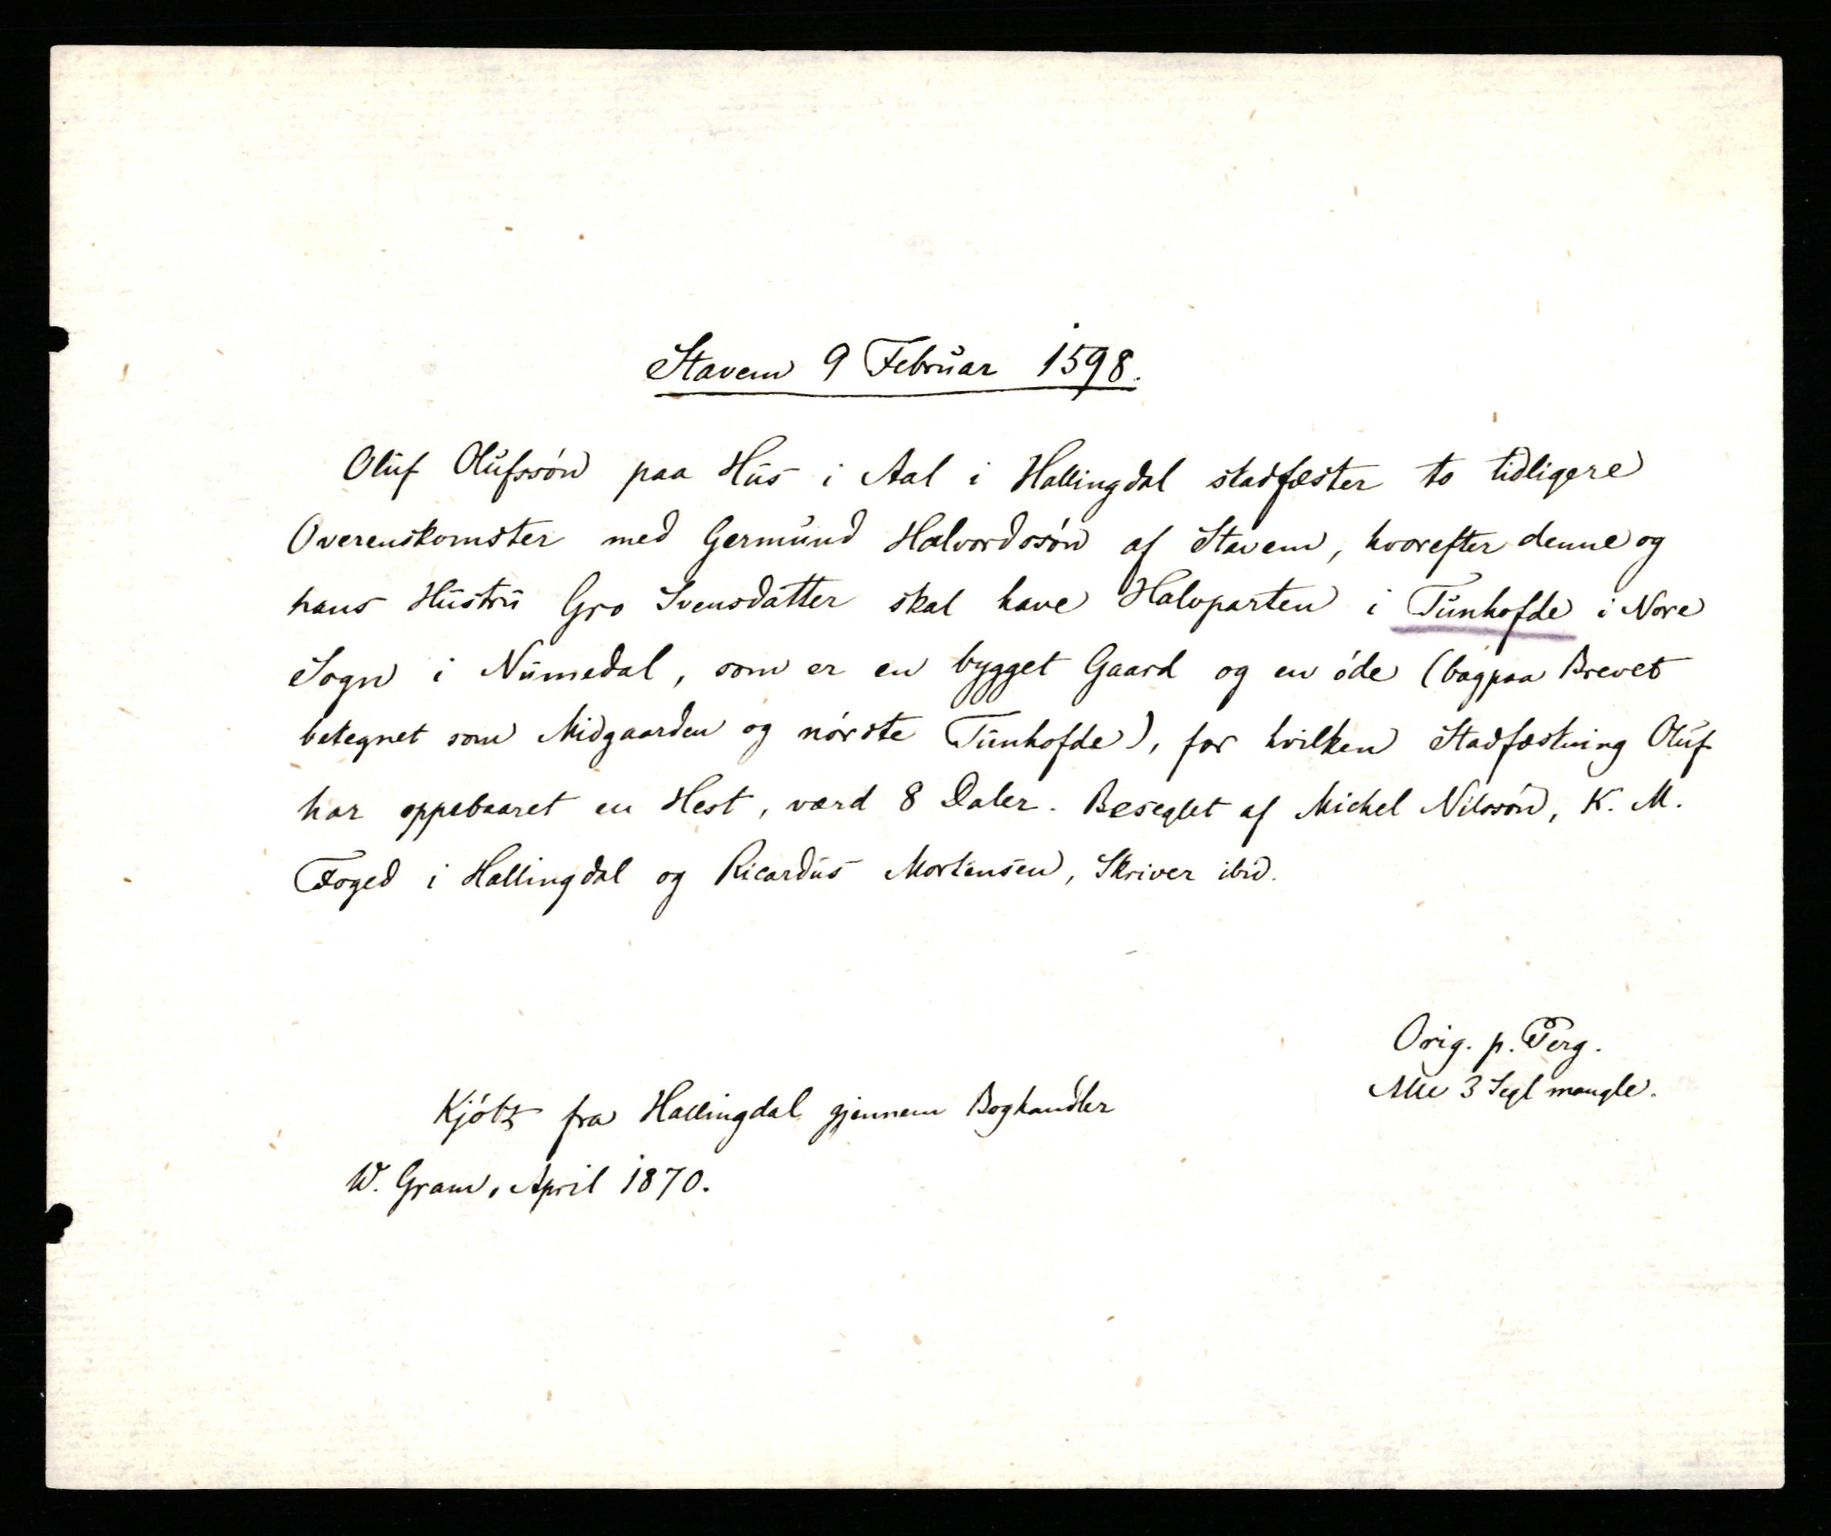 Stavem 9 Februar 1598.
Oluf Olufssón paa Hus i Aal i Hallingdal stadfæster to tidligere
Overenskomster med Germund Halvordssón af Stavem, hvorefter denne og
hans Hustru Gro Svensdatter skal have Halvparten i Tunhofde i Nore
Sogn i Numedal, som er en bygget Gaard og en óde (bagpaa Brevet
betegnet som Midgaarden og nórste Tunhofde), for hvilken Stadfæstning Oluf
har oppebaaret en Hest, værd 8 Daler. Beseglet af Michel Nilssón, K. M.
Foged i Hallingdal og Ricardus Mortensen, Skriver ibid.
Orig. p. Perg.
Alle 3 Segl mangle.
Kjóbt fra Hallingdal gjennem Boghandler
W. Gram, April 1870.